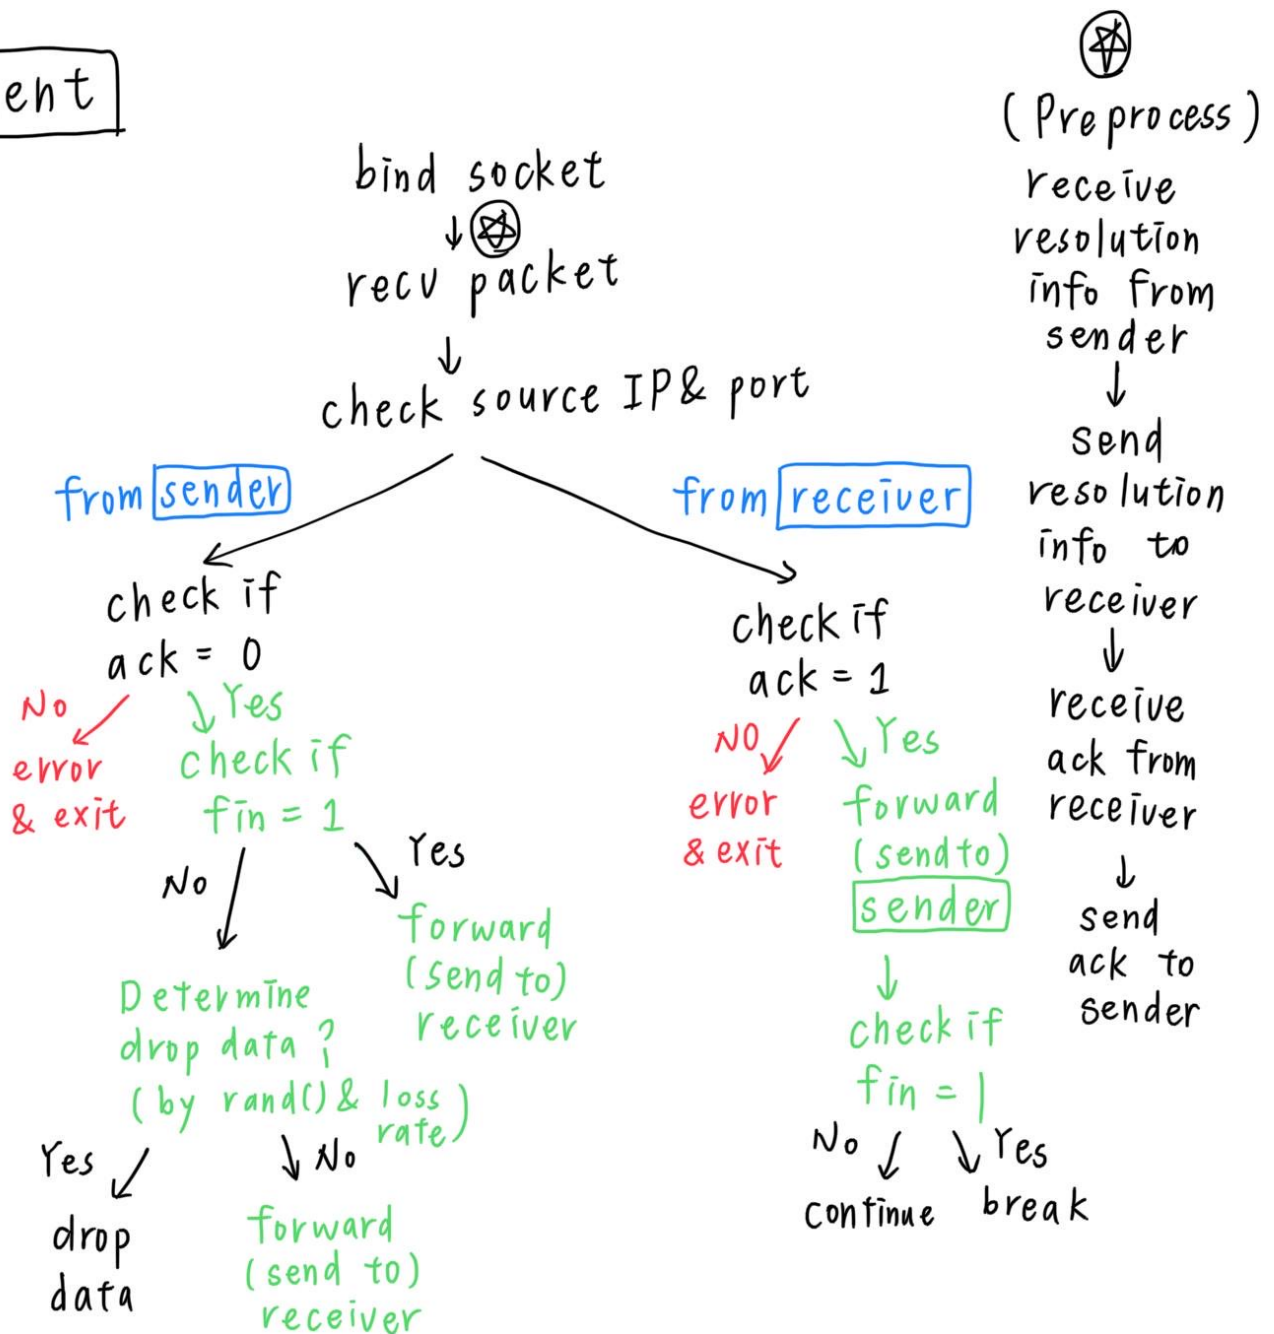 ent
bind socket
recv packet
check source IP & port
from sender
check if
ack = 0
No
error
& exit
Yes
check if
fin = 1
No
Determine
drop data ?
(by rand() & loss
rate)
Yes
drop
data
No
forward
(send to)
receiver
Yes
forward
(send to)
receiver
from receiver
check if
ack = 1
NO
error
& exit
Yes
forward
(send to)
sender
check if
fin = 1
No
continue
Yes
break
(Preprocess)
receive
resolution
info from
sender
send
resolution
info to
receiver
receive
ack from
receiver
send
ack to
sender